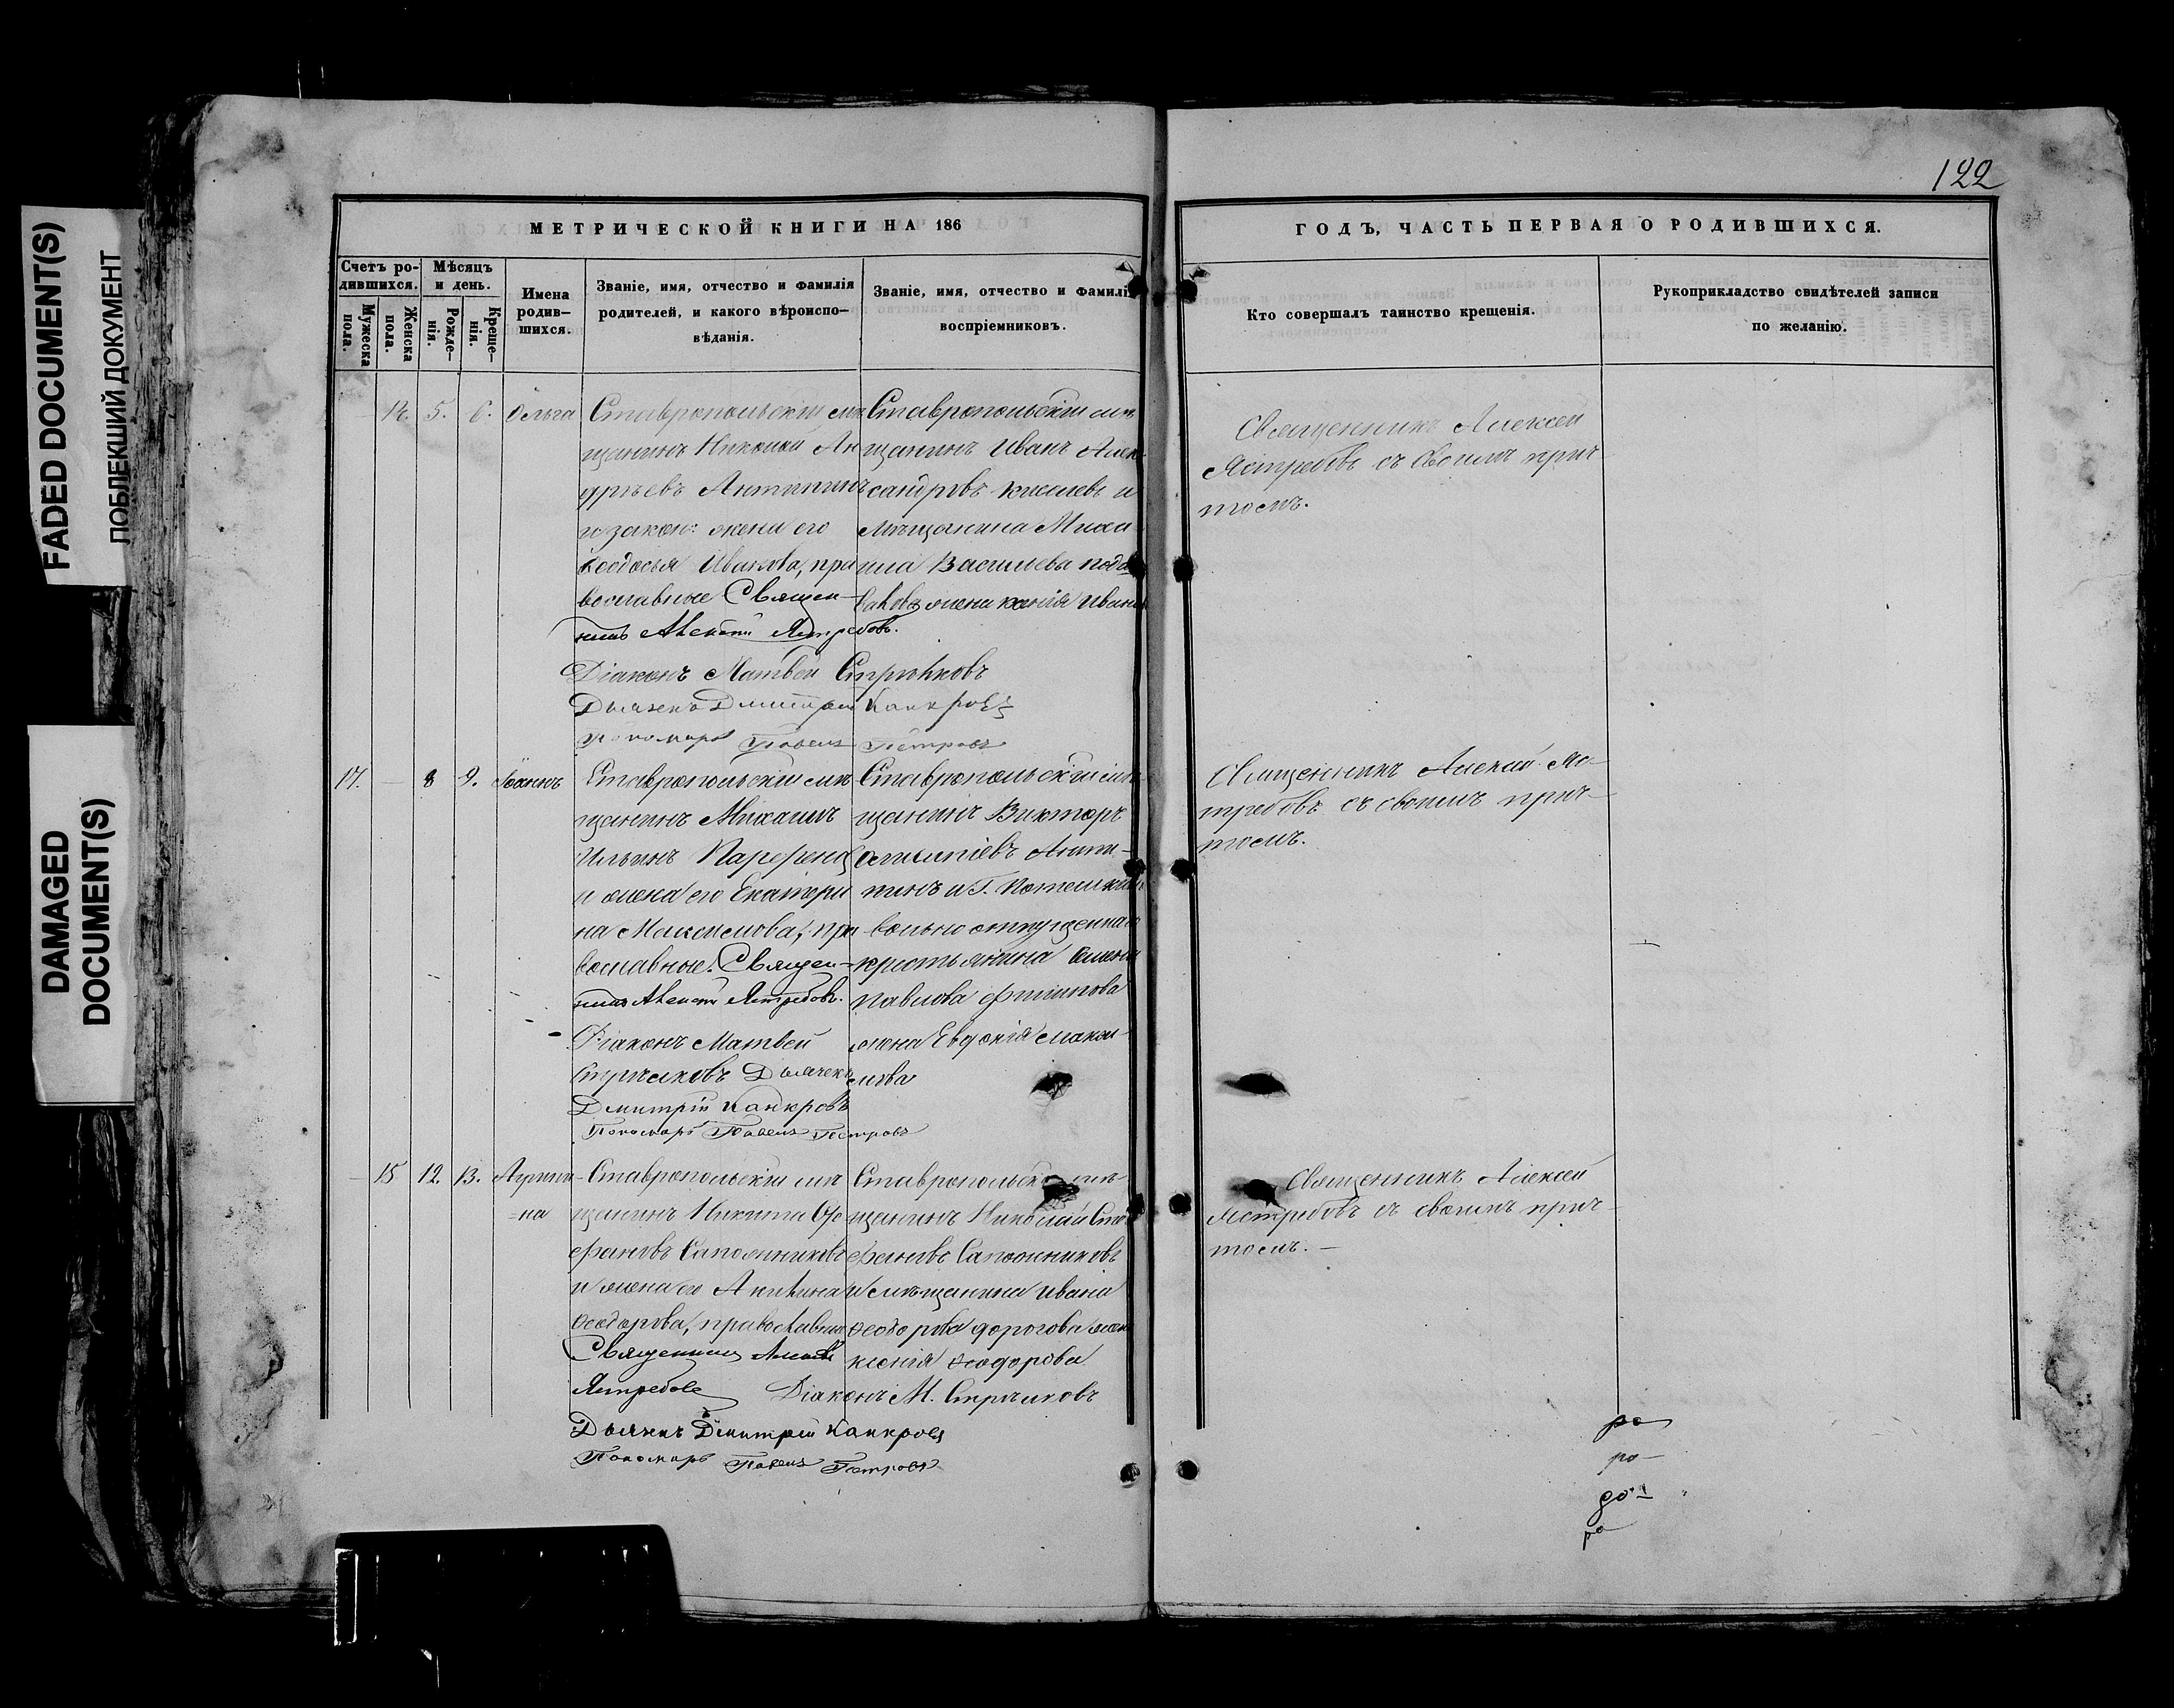 FADED DOCUMENT(S)
ПОБЛЕКШИЙ ДОКУМЕНТ
DAMAGED
DOCUMENT(S)
122
МЕТРИЧЕСКОЙ КНИГИ НА 186
ГОДЪ, ЧАСТЬ ПЕРВАЯ О РОДИВШИХСЯ.
Счетъ ро-
дившихся.
Мужеска
пола.
Женска
пола.
Мѣсяцъ
и день.
Рожде-
нія.
Креще-
нія.
Имена
родив-
шихся.
Званіе, имя, отчество и фамилія
родителей, и какого вѣроиспо-
вѣданія.
Званіе, имя, отчество и фамилі
воспріемниковъ.
Кто совершалъ таинство крещенія.
Рукоприкладство свидѣтелей записи
по желанію.
5. 6. Ольга
Ставропольскій мѣ
щанинъ Николай Ан
дрѣевъ Антипинъ
и закон: жена его
Ѳеодосья Иванова, пра
вославные Священ-
никъ Алексѣй Ястребовъ.
Діаконъ Матвей Стрѣлковъ
Дьячекъ Дмитрій Канкровъ
Пономарь Павелъ Петровъ
Ставропольскій мѣ
щанинъ Иванъ Алек
сандровъ Киселевъ и
мѣщанина Михаи
ла Васильева
жена Ксенія Иван
Священникъ Алексей
Ястребовъ съ своимъ прич
томъ.
17. — 8 9. Іоаннъ
Ставропольскій мѣ
щанинъ Михаилъ
Ильинъ
и жена его Екатери
на Максимова, пра
вославные. Священ-
никъ Алексѣй Ястребовъ.
Діаконъ Матвей
Стрѣлковъ Дьячекъ
Дмитрій Канкровъ
Пономарь Павелъ Петровъ
Ставропольскій мѣ
щанинъ Викторъ
Анти-
пинъ и Г.
вольноотпущеннаго
крестьянина Семена
Павлова Филипова
жена Евдокія Макси-
мова
Священникъ Алексей Яс-
требовъ съ своимъ прич-
томъ.
— 15 12. 13. Агрипи-
=на
Ставропольскій мѣ
щанинъ Никита Сте
фановъ Сапожниковъ
и жена его Акилина
Ѳеодорова, православные
Священникъ Алексѣй
Ястребовъ Діаконъ М. Стрѣлковъ
Дьячекъ Дмитрій Канкровъ
Пономарь Павелъ Петровъ
Ставропольскій мѣ-
щанинъ Николай Сте
фановъ Сапожниковъ
и мѣщанина Ивана
Ѳеодорова Дорогова жен
Ксенія Ѳеодорова
Священникъ Алексей
Ястребовъ съ своимъ прич-
томъ. —